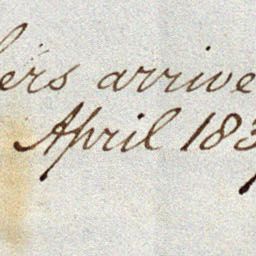 ers arrive
April 183